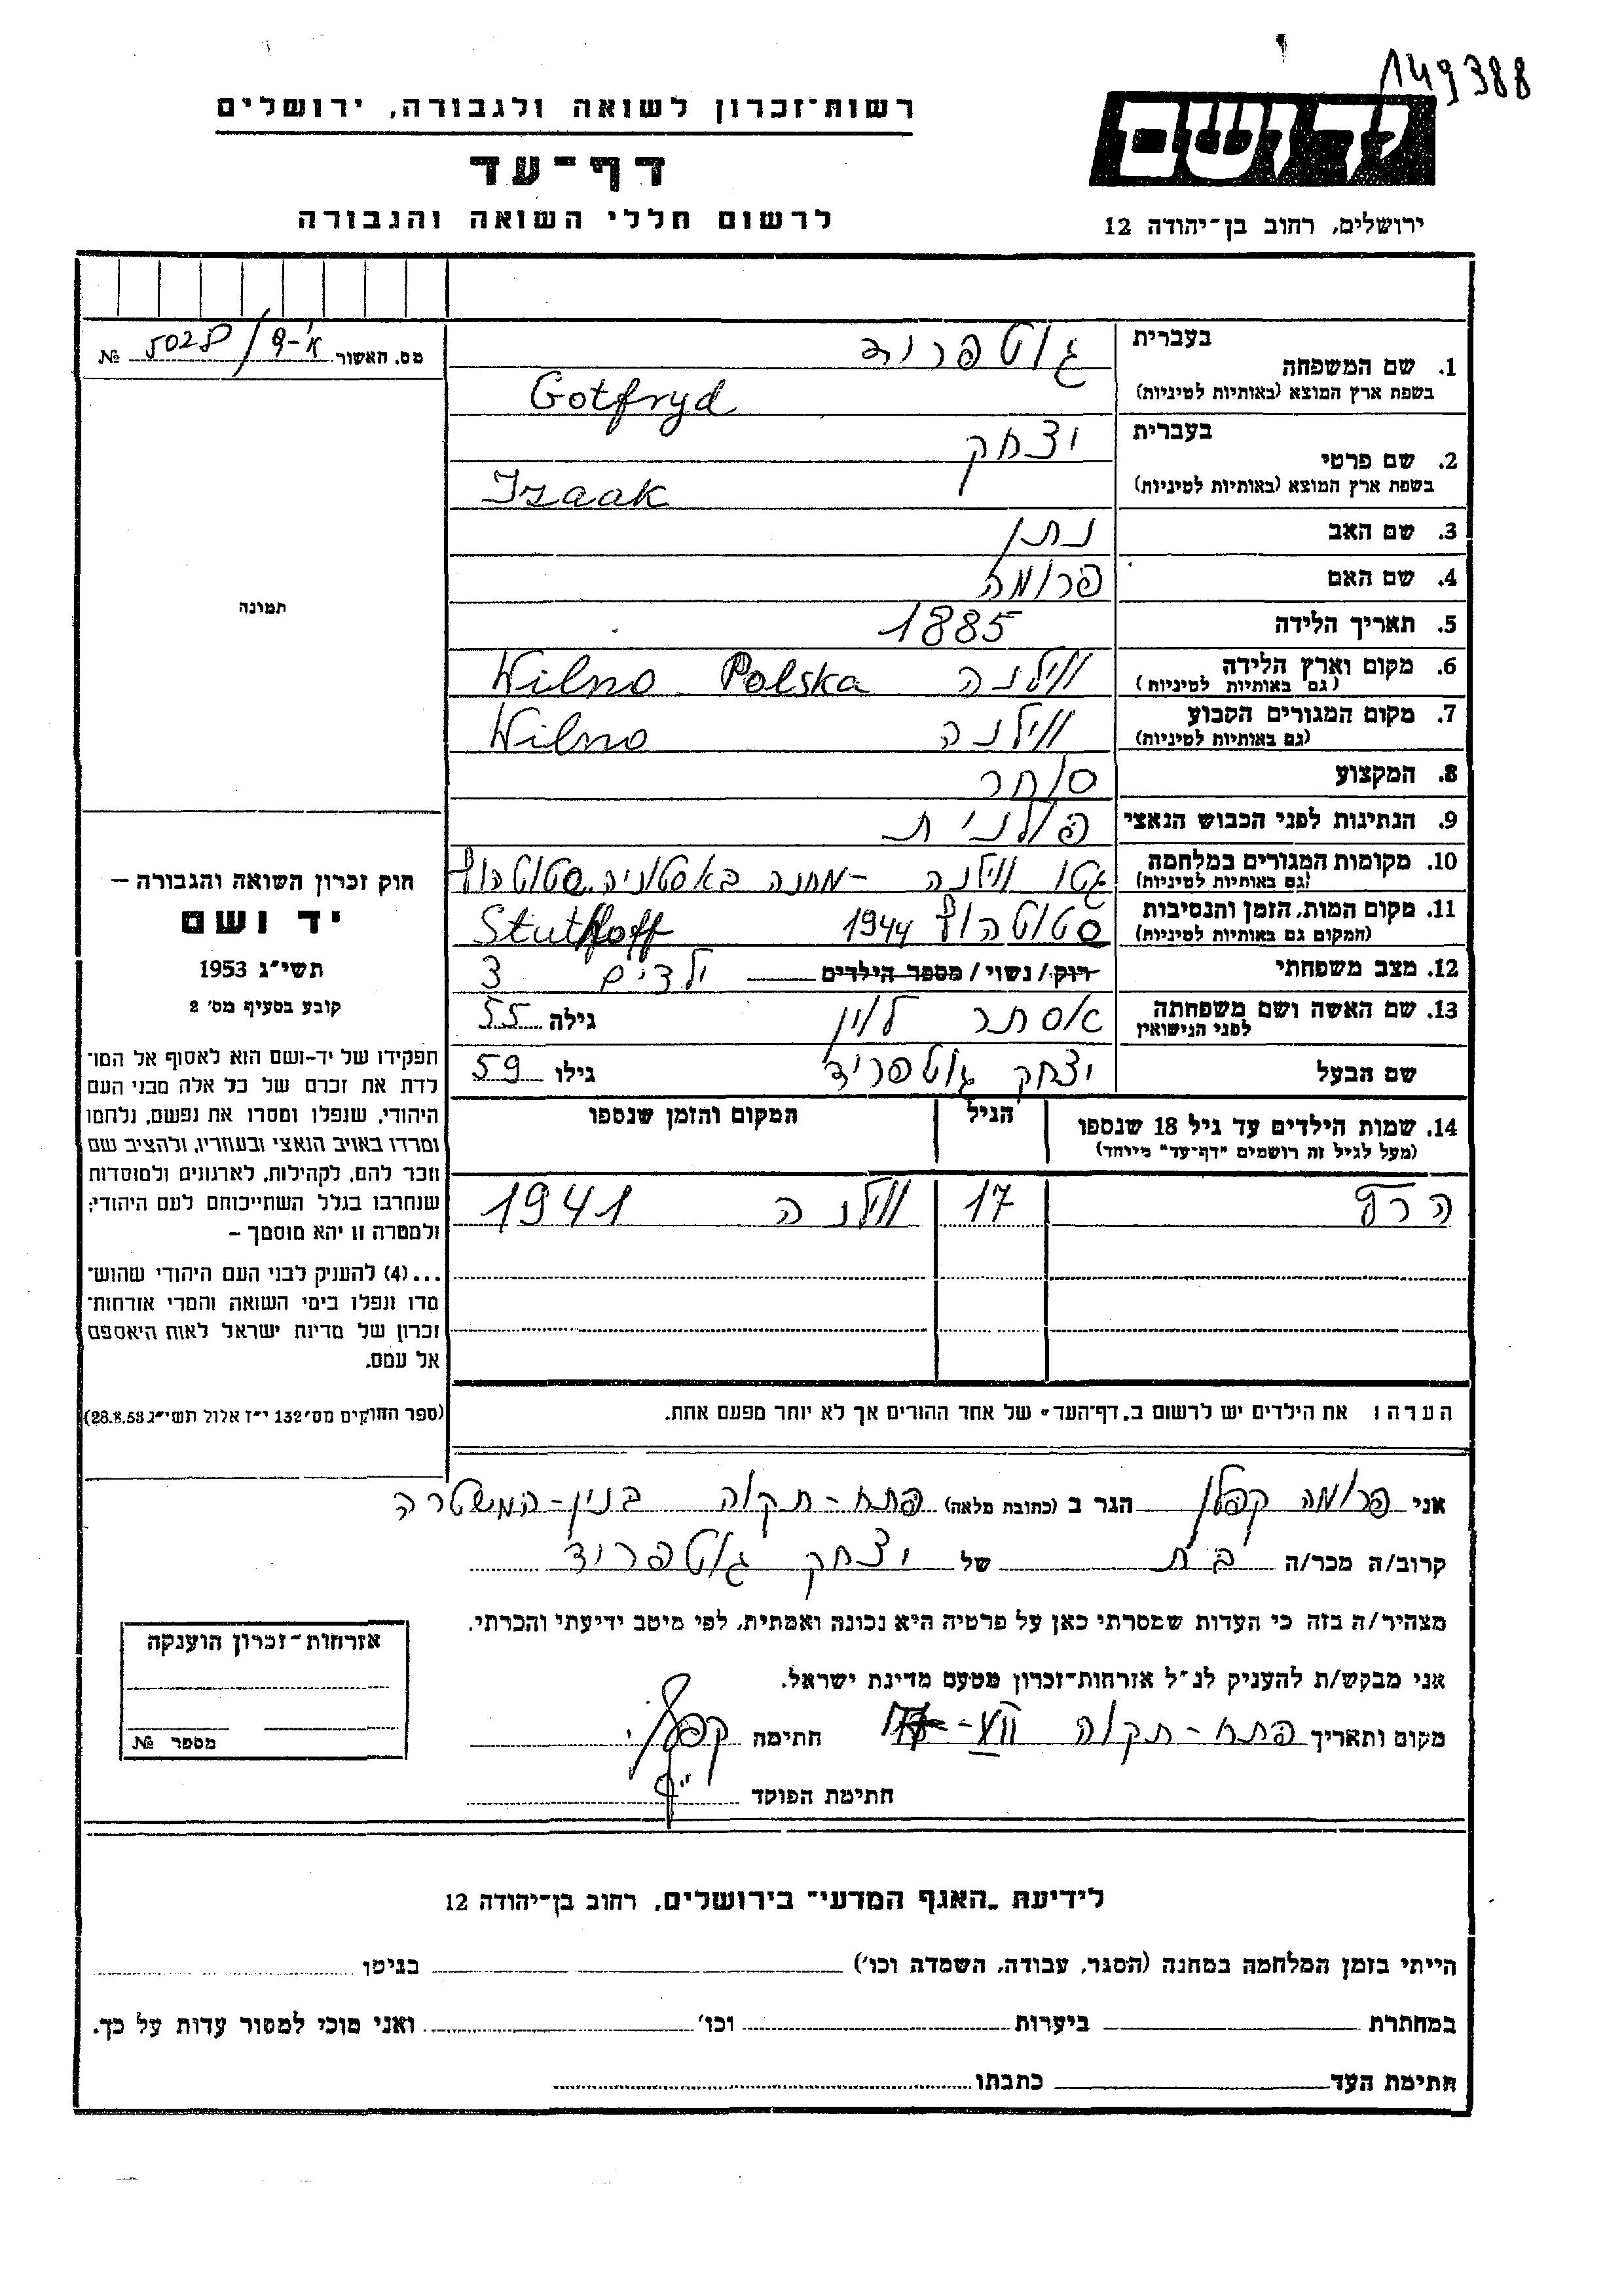 149388
רשות-זכרון לשואה ולגבורה, ירושלים
יד ושם
דף-עד
לרשום חללי השואה והגבורה
ירושלים, רחוב בן-יהודה 12
מס. האשור א'-פ/ 5028 №
תמונה
בעברית גוטפריד
1. שם המשפחה
בשפת ארץ המוצא (באותיות לטיניות) Gotfryd
בעברית יצחק
2. שם פרטי
בשפת ארץ המוצא (באותיות לטיניות) Izaak
3. שם האב נתן
4. שם האם פרומה
5. תאריך הלידה 1885
6. מקום וארץ הלידה ווילנה Wilno Polska
(גם באותיות לטיניות)
7. מקום המגורים הקבוע ווילנה Wilno
(גם באותיות לטיניות)
8. המקצוע סוחר
9. הנתינות לפני הכבוש הנאצי פולנית
10. מקומות המגורים במלחמה גטו ווילנה - מחנה באסטוניה, שטוטהוף
(גם באותיות לטיניות)
11. מקום המות, הזמן והנסיבות שטוטהוף 1944 Stuthoff
(המקום גם באותיות לטיניות)
12. מצב משפחתי רוק/נשוי/מספר הילדים ילדים 3
13. שם האשה ושם משפחתה אסתר לוין גילה 55
לפני הנישואין
שם הבעל יצחק גוטפריד גילו 59
14. שמות הילדים עד גיל 18 שנספו הגיל המקום והזמן שנספו
(מעל לגיל זה רושמים "דף-עד" מיוחד)
17 ווילנה 1941
הערה: את הילדים יש לרשום ב"דף-העד" של אחד ההורים אך לא יותר מפעם אחת.
חוק זכרון השואה והגבורה –
יד ושם
תשי"ג 1953
קובע בסעיף מס' 2
תפקידו של יד-ושם הוא לאסוף אל המו־
לדת את זכרם של כל אלה מבני העם
היהודי, שנפלו ומסרו את נפשם, נלחמו
ומרדו באויב הנאצי ובעוזריו, ולהציב שם
וזכר להם, לקהילות, לארגונים ולמוסדות
שנחרבו בגלל השתייכותם לעם היהודי;
ולמטרה זו יהא מוסמך –
...(4) להעניק לבני העם היהודי שהוש־
מדו ונפלו בימי השואה והמרי אזרחות־
זכרון של מדינת ישראל לאות היאספם
אל עמם.
(ספר החוקים מס' 132 י"ז אלול תשי"ג 28.8.53)
אני פרומה קפלן הגר ב (כתובת מלאה) פתח-תקוה בנין-המשטרה
קרוב/ה מכר/ה בת של יצחק גוטפריד
מצהיר/ה בזה כי העדות שמסרתי כאן על פרטיה היא נכונה ואמתית, לפי מיטב ידיעתי והכרתי.
אני מבקש/ת להעניק לנ"ל אזרחות-זכרון מטעם מדינת ישראל.
מקום ותאריך פתח-תקוה חתימה
חתימת הפוקד
אזרחות-זכרון הוענקה
מספר №
לידיעת "האגף המדעי" בירושלים, רחוב בן-יהודה 12
הייתי בזמן המלחמה במחנה (הסגר, עבודה, השמדה וכו') בגיטו
במחתרת ביערות וכו' ואני מוכן למסור עדות על כך.
חתימת העד כתבתו